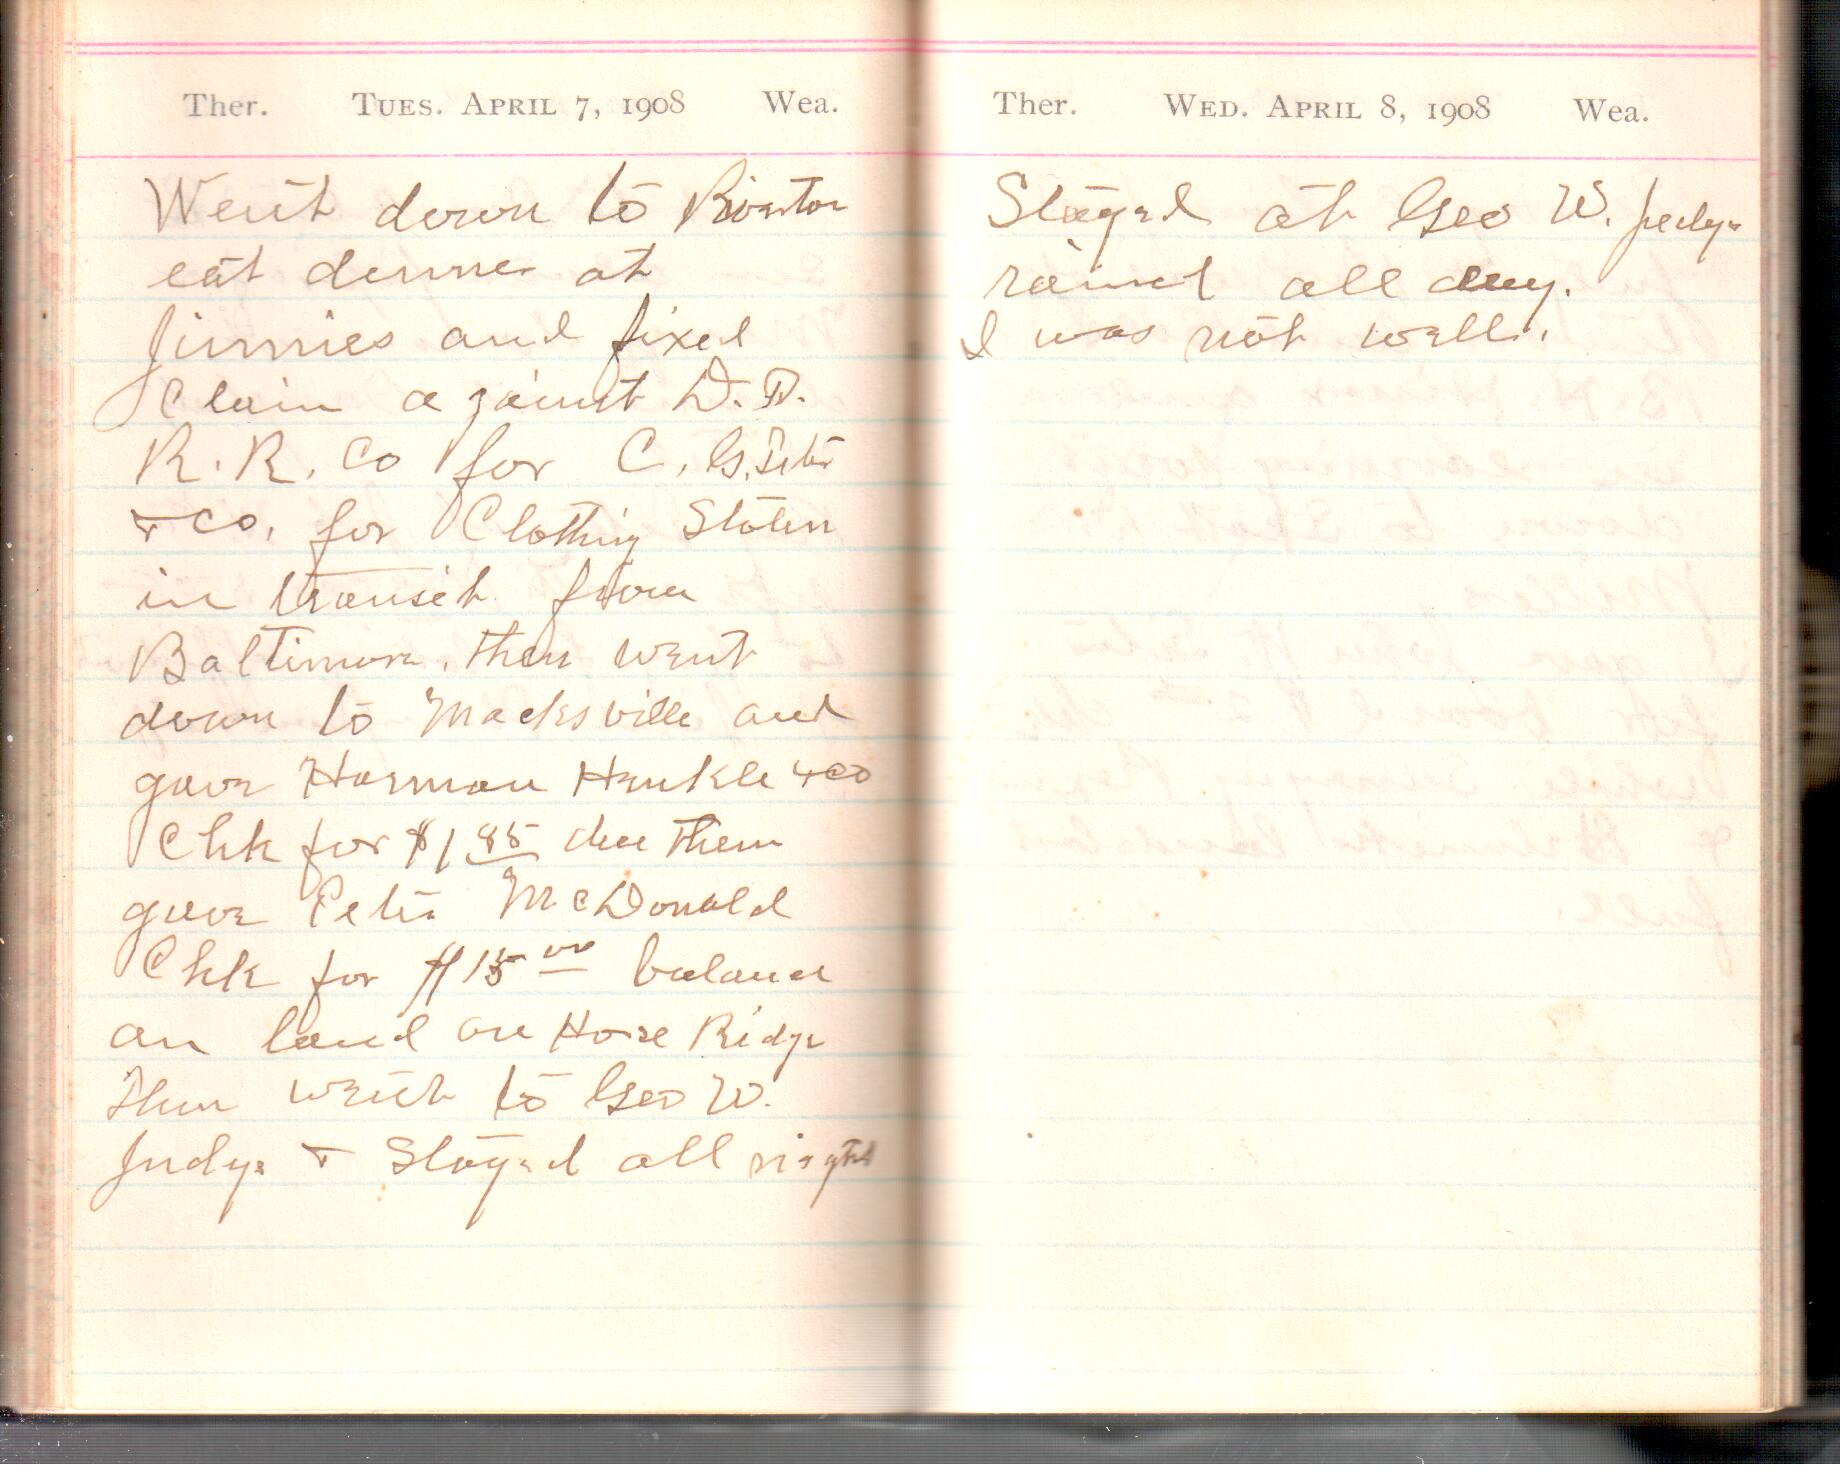 Ther. TUES. APRIL 7, 1908 Wea.
Went down to Riverton
eat dinner at
Jimmies and fixed
Claim against D.
R. R. Co for C. G.
& Co. for Clothing Stolen
in transit from
Baltimore. then went
down to Macksville and
gave Harman Hinkle & Co
Chk for $1 85 due them
gave Peter McDonald
Chk for $15 00 balance
on land on Horse Ridge
Then went to Geo W.
Judys & Stayed all night
Ther. WED. APRIL 8, 1908 Wea.
Stayed at Geo W. Judys
rained all day.
I was not well.